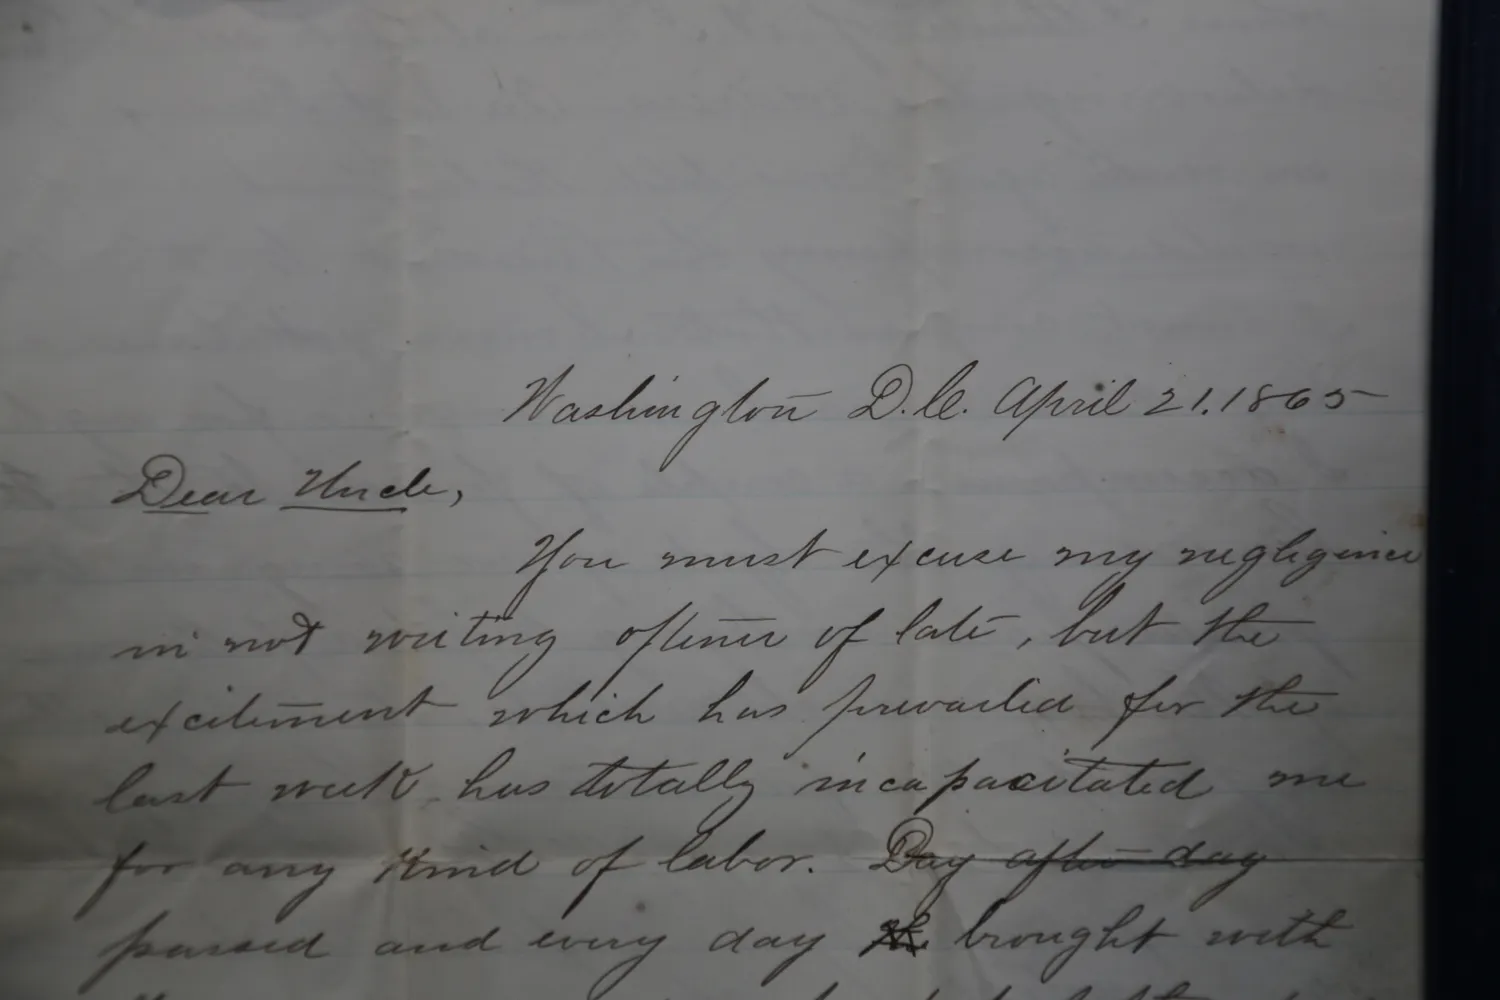 Washington D.C. April 21. 1865
Dear Uncle,
You must excuse my negligence
in not writing oftener of late, but the
excitement which has prevailed for the
last week has totally incapacitated me
for any kind of labor. Day after day
passed and every day brought with